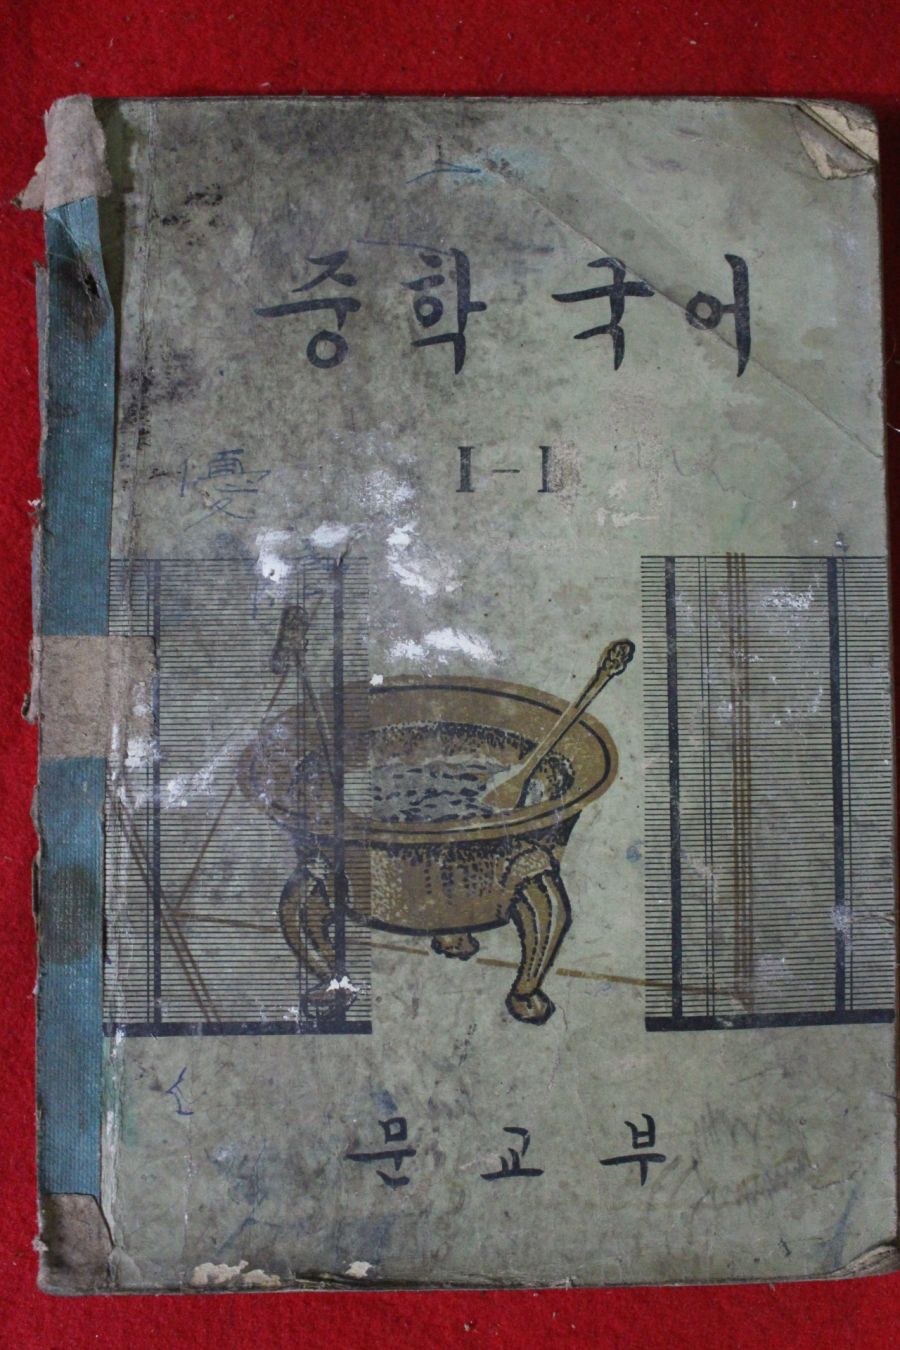 중학 국어
I-I
憂
문교부